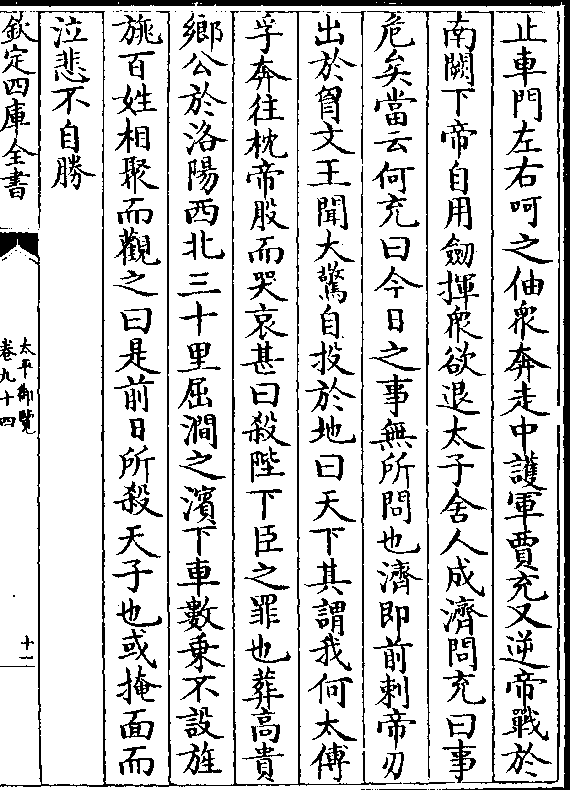 止車門左右呵之伷衆奔走中護軍賈充又逆帝戰於
南闕下帝自用劒揮衆欲退太子舍人成濟問充曰事
危矣當云何充曰今日之事無所問也濟即前刺帝刃
出於胷文王聞大驚自投於地曰天下其謂我何太傅
孚奔往枕帝股而哭哀甚曰殺陛下臣之罪也葬高貴
鄉公於洛陽西北三十里屈澗之濱下車數乗不設旌
旐百姓相聚而觀之曰是前日所殺天子也或掩面而
泣悲不自勝
欽定四庫全書
太平御覽
卷九十四
十一